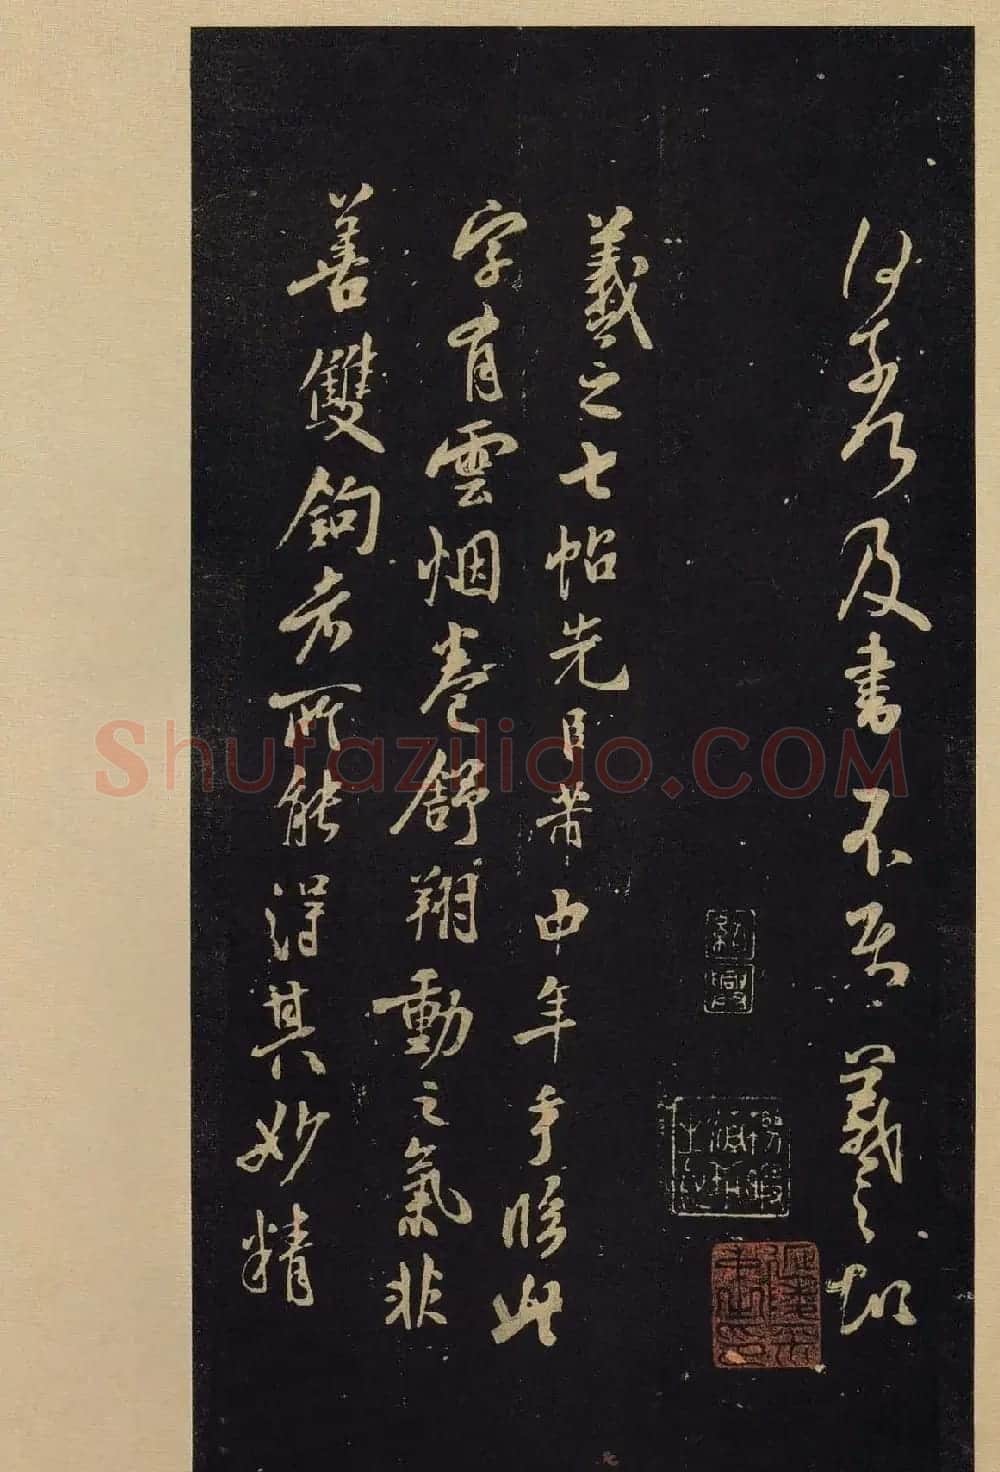 何 及書不 羲之
紹興
羲之七帖先臣芾中年手臨此
字有雲烟卷舒翔動之氣非
善雙鉤者所能得其妙精
Shufazilido.COM